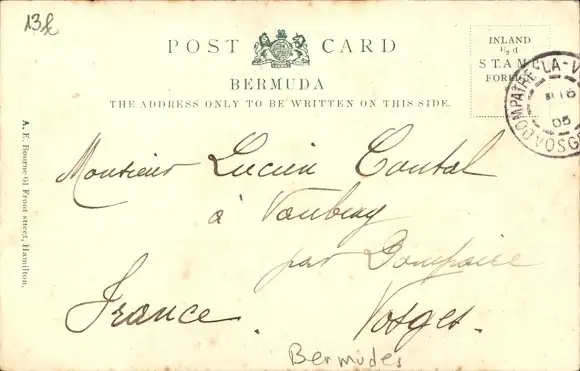 13k
POST CARD
BERMUDA
THE ADDRESS ONLY TO BE WRITTEN ON THIS SIDE.
INLAND
½d
STAMP
FOREI
DOMPAIRE-LA-V
16
05
VOSGE
A. E. Bourne 61 Front street, Hamilton.
Monsieur Lucien Coutal
à Vaubexy
par Dompaire
France. Vosges.
Bermudes